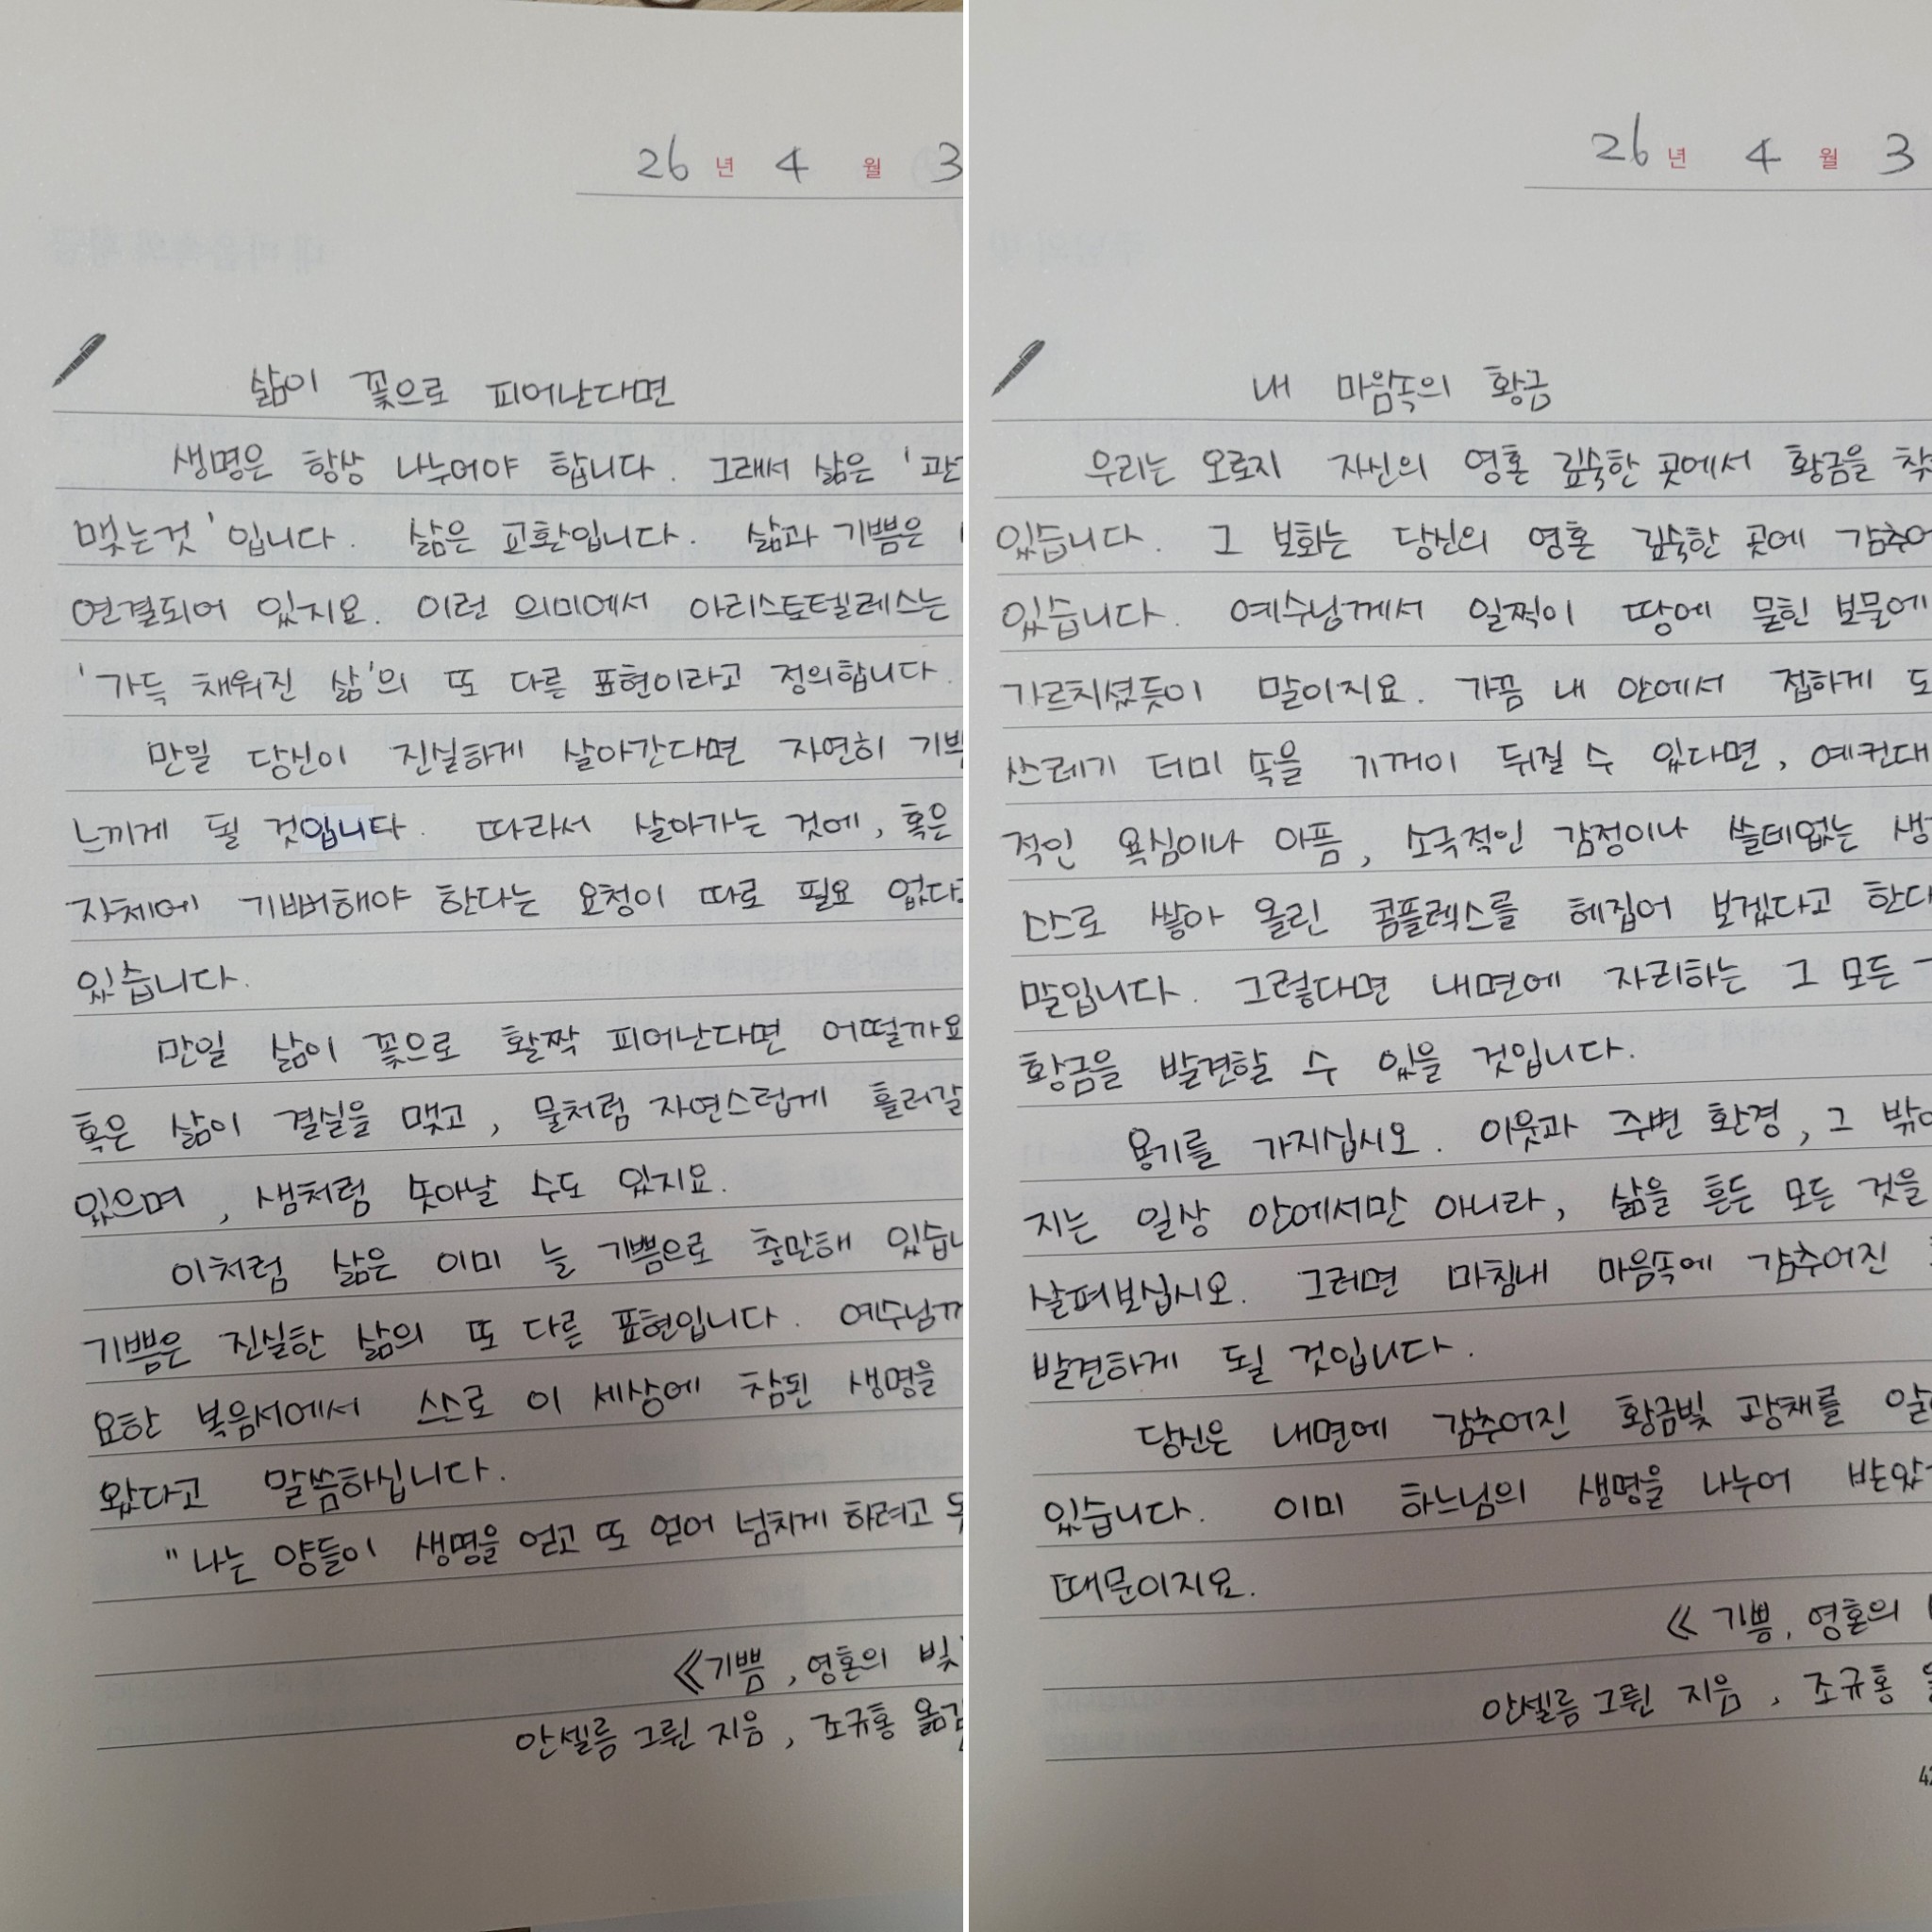 26 년 4 월 3
삶이 꽃으로 피어난다면
생명은 항상 나누어야 합니다. 그래서 삶은 '관
맺는것'입니다. 삶은 교환입니다. 삶과 기쁨은
연결되어 있지요. 이런 의미에서 아리스토텔레스는
'가득 채워진 삶'의 또 다른 표현이라고 정의합니다.
만일 당신이 진실하게 살아간다면 자연히 기쁨
느끼게 될 것입니다. 따라서 살아가는 것에, 혹은
자체에 기뻐해야 한다는 요청이 따로 필요 없다
있습니다.
만일 삶이 꽃으로 활짝 피어난다면 어떨까요
혹은 삶이 결실을 맺고, 물처럼 자연스럽게 흘러갈
있으며, 샘처럼 솟아날 수도 있지요.
이처럼 삶은 이미 늘 기쁨으로 충만해 있습니
기쁨은 진실한 삶의 또 다른 표현입니다. 예수님께
요한 복음서에서 스스로 이 세상에 참된 생명을
왔다고 말씀하십니다.
"나는 양들이 생명을 얻고 또 얻어 넘치게 하려고
《기쁨, 영혼의 빛
안셀름 그륀 지음, 조규홍 옮김
26 년 4 월 3
내 마음속의 황금
우리는 오로지 자신의 영혼 깊숙한 곳에서 황금을
있습니다. 그 보화는 당신의 영혼 깊숙한 곳에 감추어
있습니다. 예수님께서 일찍이 땅에 묻힌 보물에
가르치셨듯이 말이지요. 가끔 내 안에서 접하게 되
쓰레기 더미 속을 기꺼이 뒤질 수 있다면, 예컨대
적인 욕심이나 아픔, 소극적인 감정이나 쓸데없는 생
스스로 쌓아 올린 콤플렉스를 헤집어 보겠다고 한다
말입니다. 그렇다면 내면에 자리하는 그 모든
황금을 발견할 수 있을 것입니다.
용기를 가지십시오. 이웃과 주변 환경, 그 밖에
지는 일상 안에서만 아니라, 삶을 흔든 모든 것을
살펴보십시오. 그러면 마침내 마음속에 감추어진
발견하게 될 것입니다.
당신은 내면에 감추어진 황금빛 광채를
있습니다. 이미 하느님의 생명을 나누어 받았
때문이지요.
《기쁨, 영혼의
안셀름 그륀 지음, 조규홍